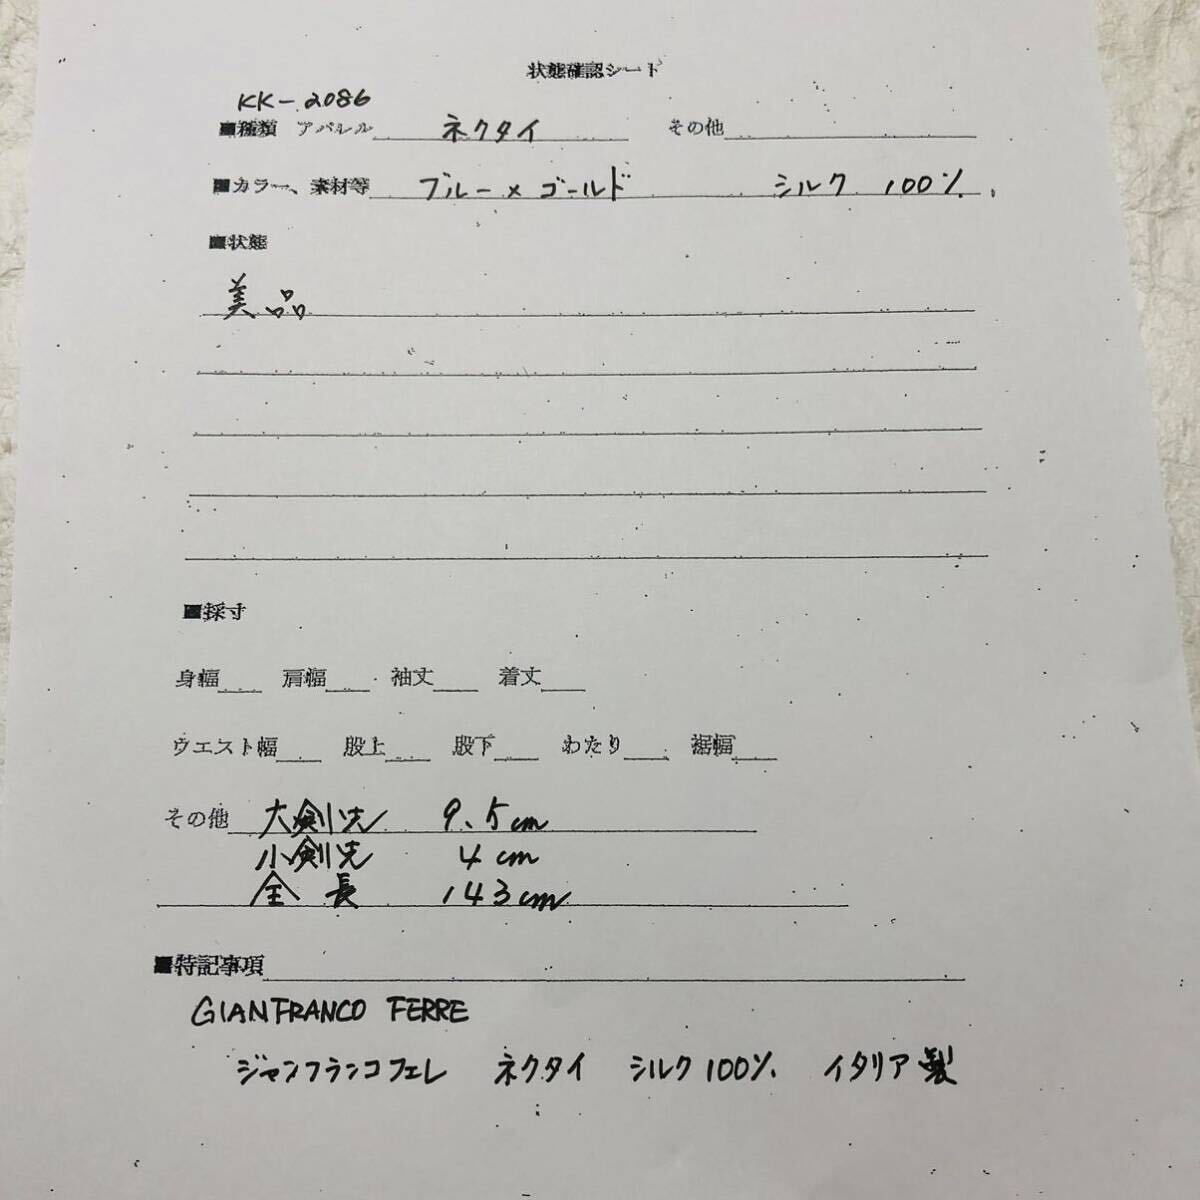 状態確認シート
KK-2086
■種類 アパレル ネクタイ その他
■カラー、素材等 ブルー×ゴールド シルク 100%
■状態
美品
■採寸
身幅 肩幅 袖丈 着丈
ウエスト幅 股上 股下 わたり 裾幅
その他 大剣先 9.5cm
小剣先 4cm
全長 143cm
■特記事項
GIANFRANCO FERRE
ジャンフランコフェレ ネクタイ シルク100% イタリア製